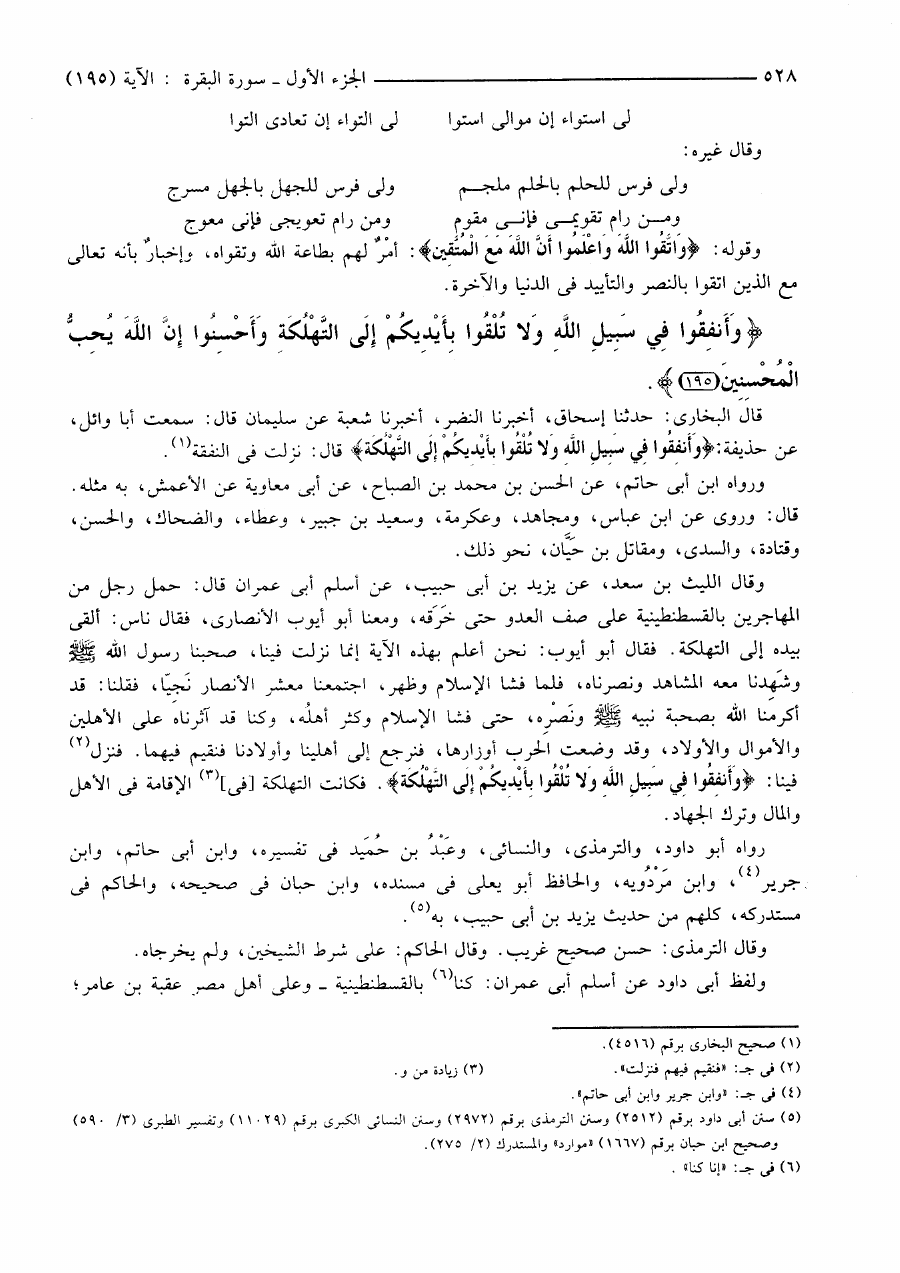 ٥٢٨ ــــــــــــــــــــ الجزء الأول ـ سورة البقرة : الآية (١٩٥)
لى استواء إن موالى استوا لى التواء إن تعادى التوا
وقال غيره:
ولى فرس للحلم بالحلم ملجـــم ولى فرس للجهل بالجهل مسرج
ومـــن رام تقويمـــى فإنـــى مقوم ومن رام تعويجى فإنى معوج
وقوله: ﴿وَاتَّقُوا اللَّهَ وَاعْلَمُوا أَنَّ اللَّهَ مَعَ الْمُتَّقِين﴾: أمْرٌ لهم بطاعة الله وتقواه، وإخبارٌ بأنه تعالى
مع الذين اتقوا بالنصر والتأييد فى الدنيا والآخرة.
﴿وَأَنفِقُوا فِي سَبِيلِ اللَّهِ وَلا تُلْقُوا بِأَيْدِيكُمْ إِلَى التَّهْلُكَةِ وَأَحْسِنُوا إِنَّ اللَّهَ يُحِبُّ
الْمُحْسِنِينَ (١٩٥)﴾.
قال البخارى: حدثنا إسحاق، أخبرنا النضر، أخبرنا شعبة عن سليمان قال: سمعت أبا وائل،
عن حذيفة: ﴿وَأَنفِقُوا فِي سَبِيلِ اللَّهِ وَلا تُلْقُوا بِأَيْدِيكُمْ إِلَى التَّهْلُكَة﴾ قال: نزلت فى النفقة(١).
ورواه ابن أبى حاتم، عن الحسن بن محمد بن الصباح، عن أبى معاوية عن الأعمش، به مثله.
قال: وروى عن ابن عباس، ومجاهد، وعكرمة، وسعيد بن جبير، وعطاء، والضحاك، والحسن،
وقتادة، والسدى، ومقاتل بن حَيَّان، نحو ذلك.
وقال الليث بن سعد، عن يزيد بن أبى حبيب، عن أسلم أبى عمران قال: حمل رجل من
المهاجرين بالقسطنطينية على صف العدو حتى خَرَقه، ومعنا أبو أيوب الأنصارى، فقال ناس: ألقى
بيده إلى التهلكة. فقال أبو أيوب: نحن أعلم بهذه الآية إنما نزلت فينا، صحبنا رسول الله ﷺ
وشَهِدنا معه المشاهد ونصرناه، فلما فشا الإسلام وظهر، اجتمعنا معشر الأنصار نَجِيّا، فقلنا: قد
أكرمنا الله بصحبة نبيه ﷺ ونَصْرِه، حتى فشا الإسلام وكثر أهلُه، وكنا قد آثرناه على الأهلين
والأموال والأولاد، وقد وضعت الحرب أوزارها، فنرجع إلى أهلينا وأولادنا فنقيم فيهما. فنزل(٢)
فينا: ﴿وَأَنفِقُوا فِي سَبِيلِ اللَّهِ وَلا تُلْقُوا بِأَيْدِيكُمْ إِلَى التَّهْلُكَة﴾. فكانت التهلكة [فى](٣) الإقامة فى الأهل
والمال وترك الجهاد.
رواه أبو داود، والترمذى، والنسائى، وعَبْدُ بن حُمَيد فى تفسيره، وابن أبى حاتم، وابن
جرير(٤)، وابن مَرْدُويه، والحافظ أبو يعلى فى مسنده، وابن حبان فى صحيحه، والحاكم فى
مستدركه، كلهم من حديث يزيد بن أبى حبيب، به(٥).
وقال الترمذى: حسن صحيح غريب. وقال الحاكم: على شرط الشيخين، ولم يخرجاه.
ولفظ أبى داود عن أسلم أبى عمران: كنا(٦) بالقسطنطينية ـ وعلى أهل مصر عقبة بن عامر؛
(١) صحيح البخارى برقم (٤٥١٦).
(٢) فى جـ: «فنقيم فيهم فنزلت». (٣) زيادة من و.
(٤) فى جـ: «وابن جرير وابن أبى حاتم».
(٥) سنن أبى داود برقم (٢٥١٢) وسنن الترمذى برقم (٢٩٧٢) وسنن النسائى الكبرى برقم (١١٠٢٩) وتفسير الطبرى (٣/ ٥٩٠)
وصحيح ابن حبان برقم (١٦٦٧) «موارد» والمستدرك (٢/ ٢٧٥).
(٦) فى جـ: «إنا كنا» .